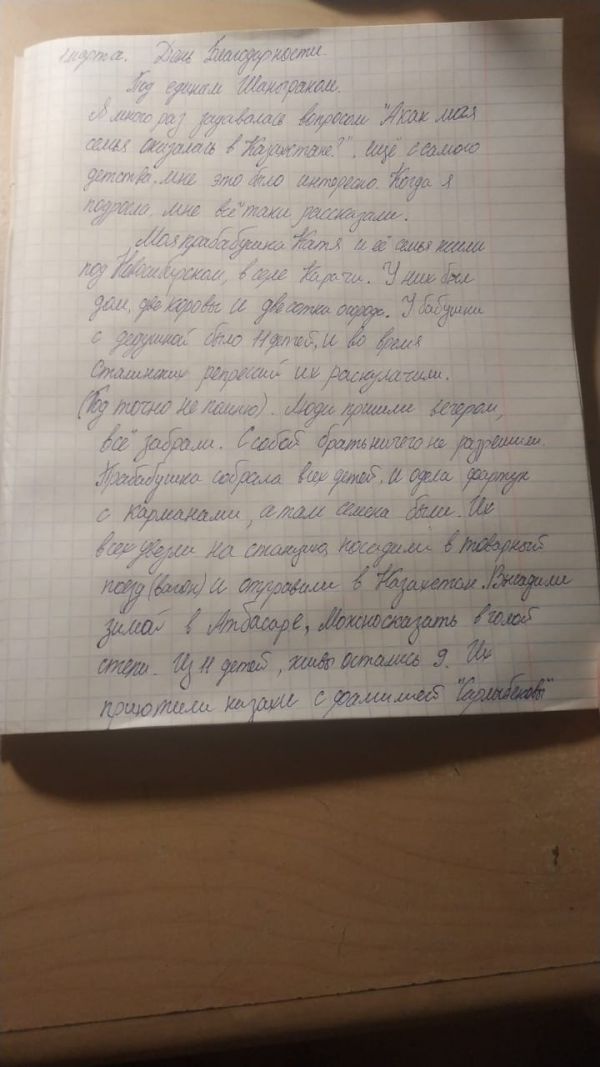 1 марта. День Благодарности.
Под единым Шаныраком.
Я много раз задавалась вопросом "А как моя
семья оказалась в Казахстане?", ещё с самого
детства мне это было интересно. Когда я
подросла, мне всё таки рассказали.
Моя прабабушка Катя и её семья жили
под Новосибирском, в селе Карачи. У них был
дом, две коровы и две сотки огорода. У бабушки
с дедушкой было 11 детей, и во время
Сталинских репрессий их раскулачили.
(Год точно не помню). Люди пришли вечером,
всё забрали. С собой брать ничего не разрешили.
Прабабушка собрала всех детей, и одела фартук
с карманами, а там семечки были. Их
всех увезли на станцию, посадили в товарный
поезд (вагон) и отправили в Казахстан. Высадили
зимой в Атбасаре, Можно сказать в голой
степи. Из 11 детей, живы остались 9. Их
приютили казахи с фамилией